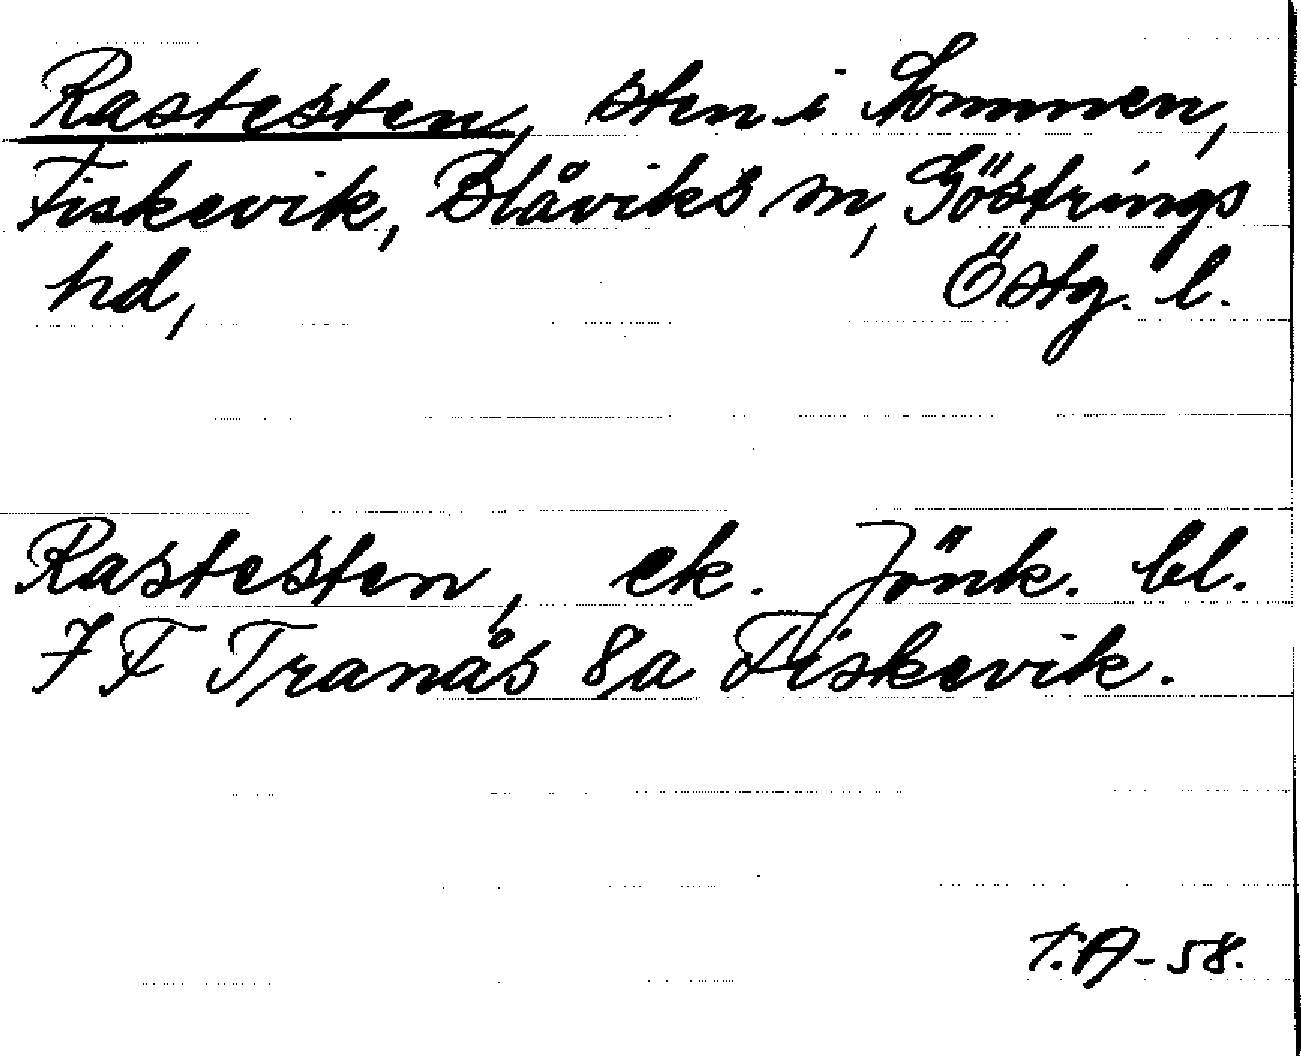 Rastesten, sten i Sommen,
Fiskevik, Blåviks sn, Göstrings
hd, Östg. l.
Rastesten, ek. Jönk. bl.
7F Tranås 8a Fiskevik.
T.A-58.